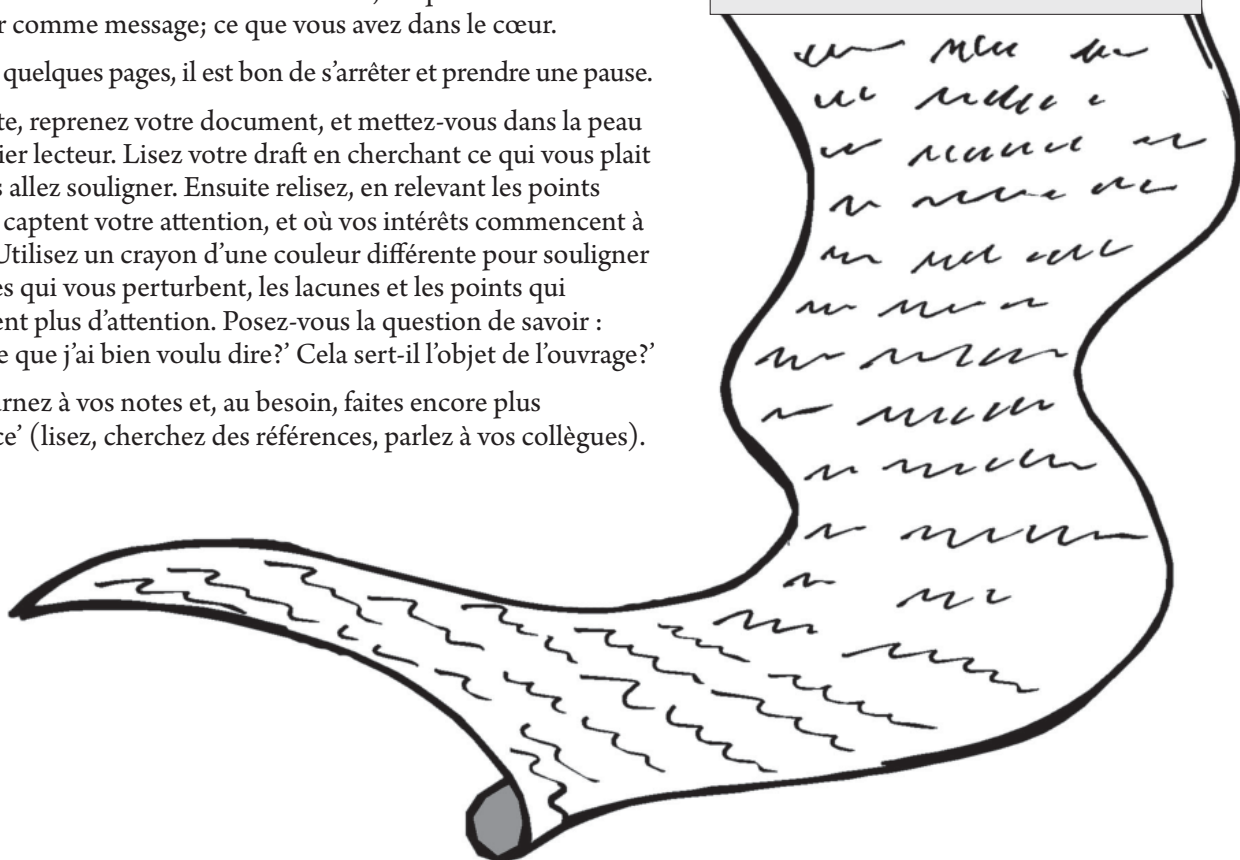 comme message; ce que vous avez dans le cœur.
quelques pages, il est bon de s'arrêter et prendre une pause.
reprenez votre document, et mettez-vous dans la peau
lecteur. Lisez votre draft en cherchant ce qui vous plait
allez souligner. Ensuite relisez, en relevant les points
captent votre attention, et où vos intérêts commencent à
Utilisez un crayon d'une couleur différente pour souligner
qui vous perturbent, les lacunes et les points qui
plus d'attention. Posez-vous la question de savoir :
que j'ai bien voulu dire?' Cela sert-il l'objet de l'ouvrage?'
à vos notes et, au besoin, faites encore plus
(lisez, cherchez des références, parlez à vos collègues).